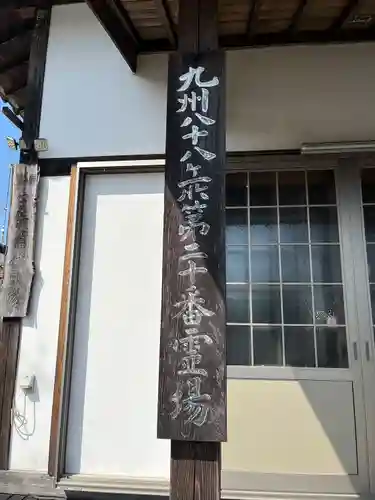 九州八十八ヶ所第二十番霊場